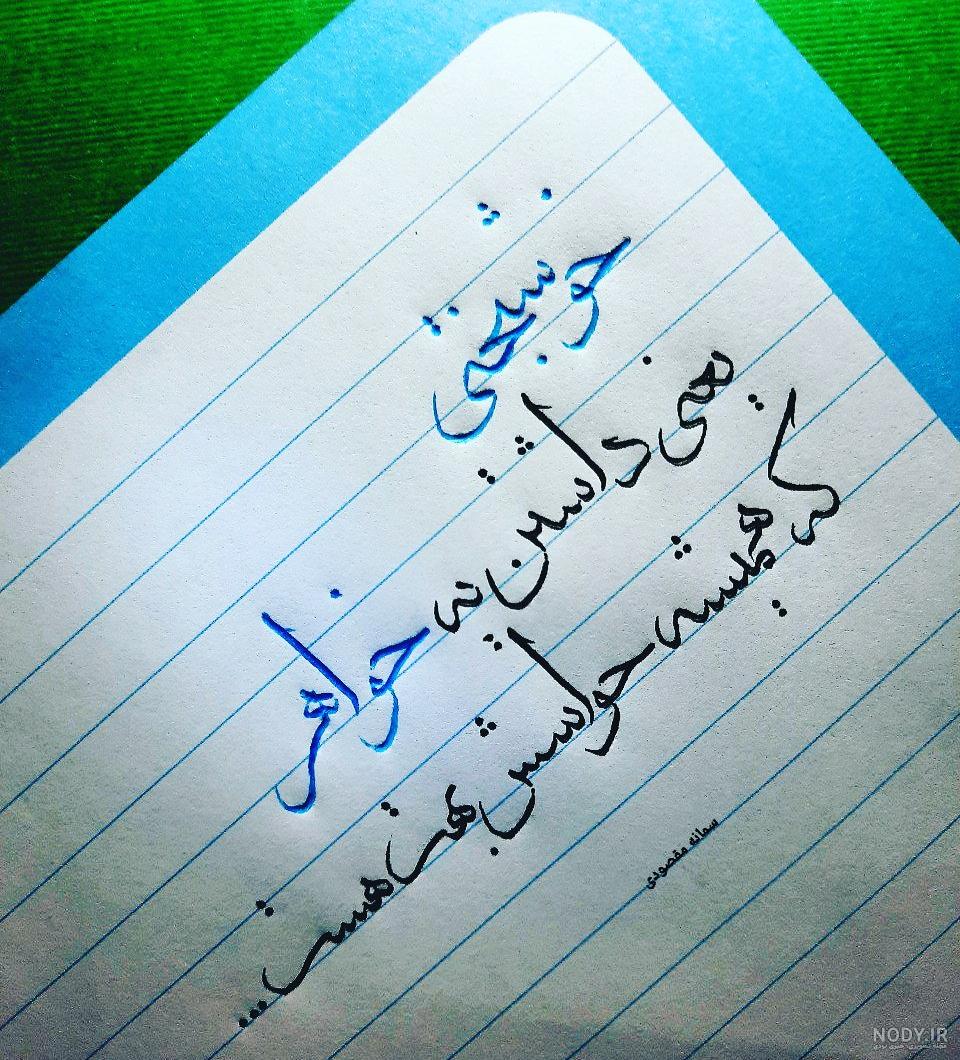 خوشبختی
یعنی داشتن یه خواهر
که همیشه حواسش بهت هست...
سمانه مقصودی
NODY.IR